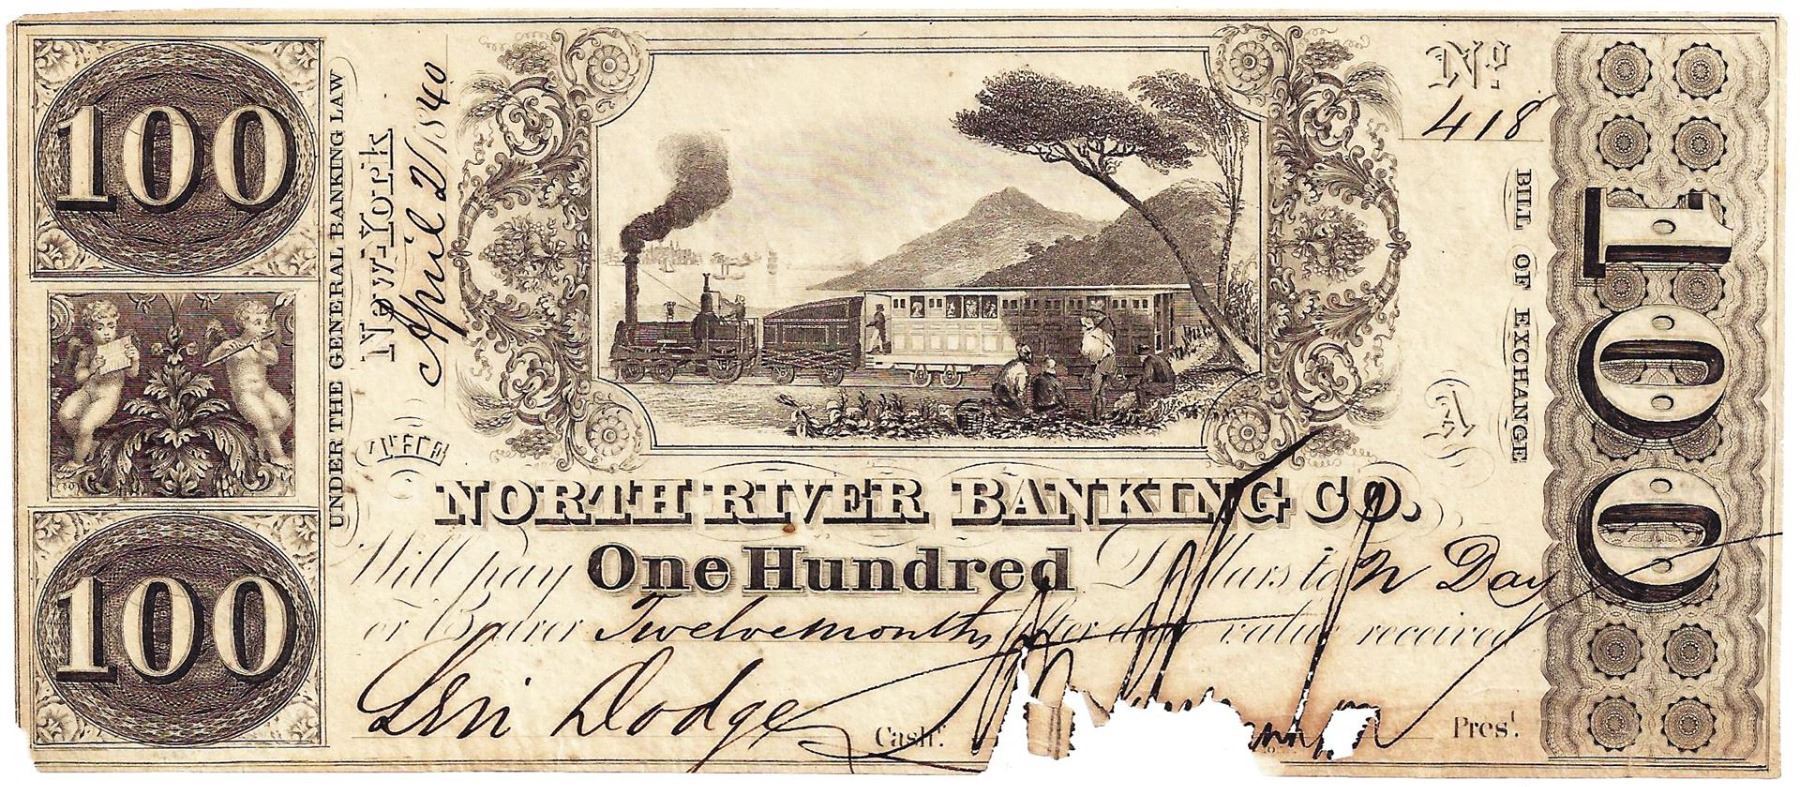 100
100
UNDER THE GENERAL BANKING LAW
New-York
April 2/1840
No.
418
BILL OF EXCHANGE
A
100
NORTH RIVER BANKING CO.
Will pay One Hundred Dollars to N Day
or Bearer Twelve months after date value received
Levi Dodge Cash.r
Pres.t